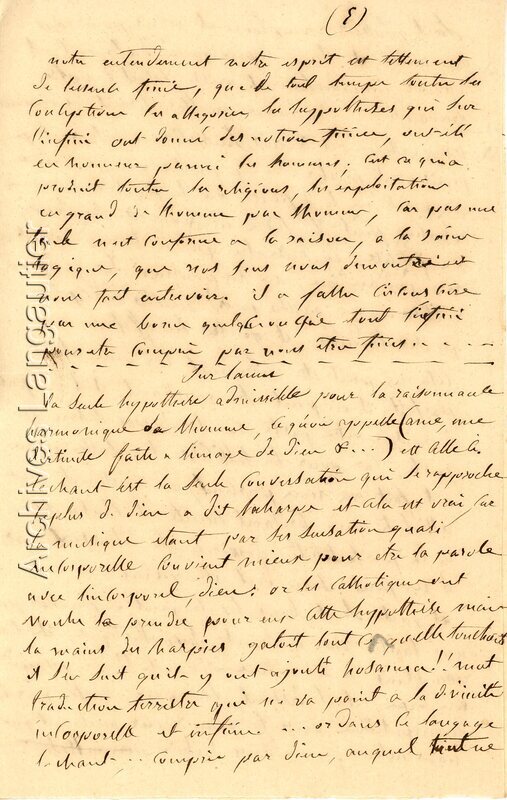 (5)
notre entendement notre esprit est tellement
de essence finie, que de tout temps toutes les
conceptions les allegories, les hyppothèses qui sur
l'infini ont donné des notions finies, ont été
en honneur parmi les hommes; c'est ce qui a
produit toutes les religions, les exploitations
en grand de l'homme par l'homme, car pas une
seule n'est conforme a la raison, a la saine
logique, que nos sens nous démontre et
nous fait entrevoir. il a fallu circonscrire
par une borne quelconque tout l'infini
pour etre compris par nous etres finis - - - -
Sur l'ame
La seule hyppothèse admissible pour la raisonnante
harmonique de l'homme, ce qu'on appelle (ame, une
faite a l'image de dieu &...) est celle ci
le chant est la seule conversation qui se rapproche
le plus de dieu a dit Laharpe et cela est vrai car
la musique etant par ses sensations quasi
incorporelle convient mieux pour etre la parole
avec l'incorporel, dieu: or les catholiques ont
voulu la prendre pour eux cette hyppothèse mais
la mains des harpies gatoit tout ce qu'elle touchoit
il s'en suit qu'ils y ont ajouté hosanna!! mot
traduction terrestre qui ne va point a la divinité
incorporelle et infinie ... or dans ce langage
le chant ... compris par dieu, auquel ne
Archives Langautier